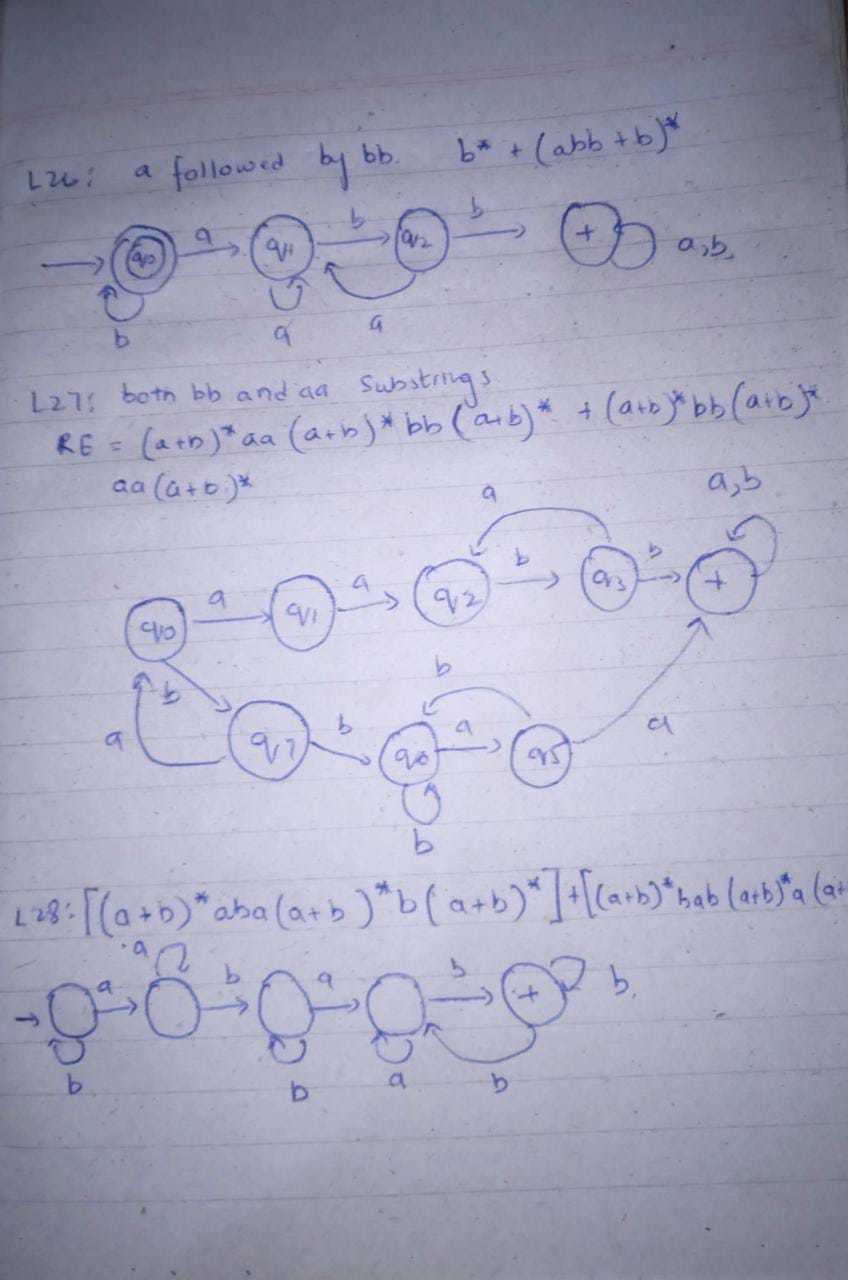 L26: a followed by bb. b* + (abb + b)*
a b b
q0 q1 q2 + a,b,
b a a
L27: both bb and aa Substrings
RE = (a+b)* aa (a+b)* bb (a+b)* + (a+b)* bb (a+b)*
aa (a+b)*
a a,b
a a b b
q0 q1 q2 q3 +
b b
a b a a
q7 q6 q5
b
L28: [(a+b)* aba (a+b)* b (a+b)*] + [(a+b)* bab (a+b)* a (a+
a
a b a b + b,
b b a b